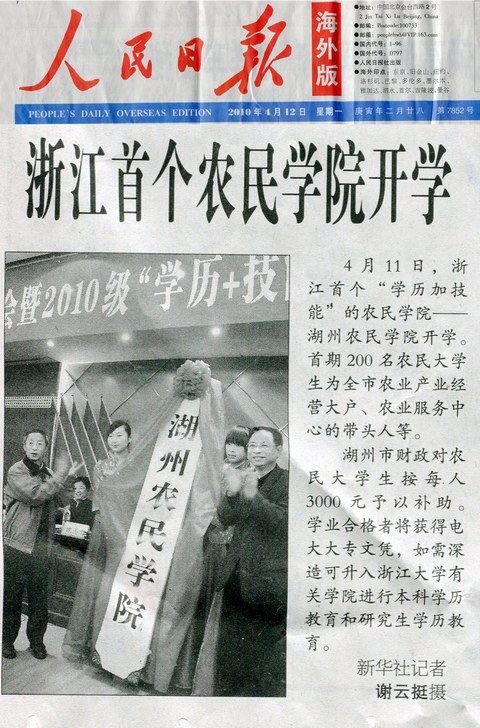 人民日报
海外版
●地址：中国北京金台西路2号
2 Jin Tai Xi Lu Beijing, China
●邮编：Postcode:100733
●国内代号：1-96
●国外代号：D797
●人民日报社出版
PEOPLE'S DAILY OVERSEAS EDITION 2010年4月12日 星期一 庚寅年二月廿八 第7852号
浙江首个农民学院开学
会暨2010级“学历+技
湖州农民学院
4月11日，浙
江首个“学历加技
能”的农民学院——
湖州农民学院开学。
首期200名农民大学
生为全市农业产业经
营大户、农业服务中
心的带头人等。
湖州市财政对农
民大学生按每人
3000元予以补助。
学业合格者将获得电
大大专文凭，如需深
造可升入浙江大学有
关学院进行本科学历
教育和研究生学历教
育。
新华社记者
谢云挺摄